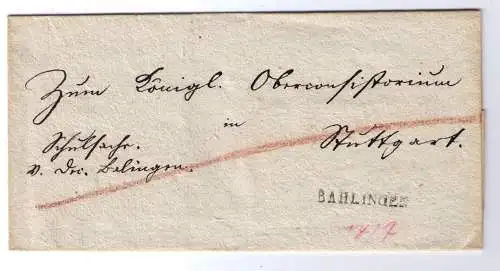 Zum Königl. Oberconsistorium
in
Stuttgart.
Schulsache.
v. Dec. Balingen.
BAHLINGEN